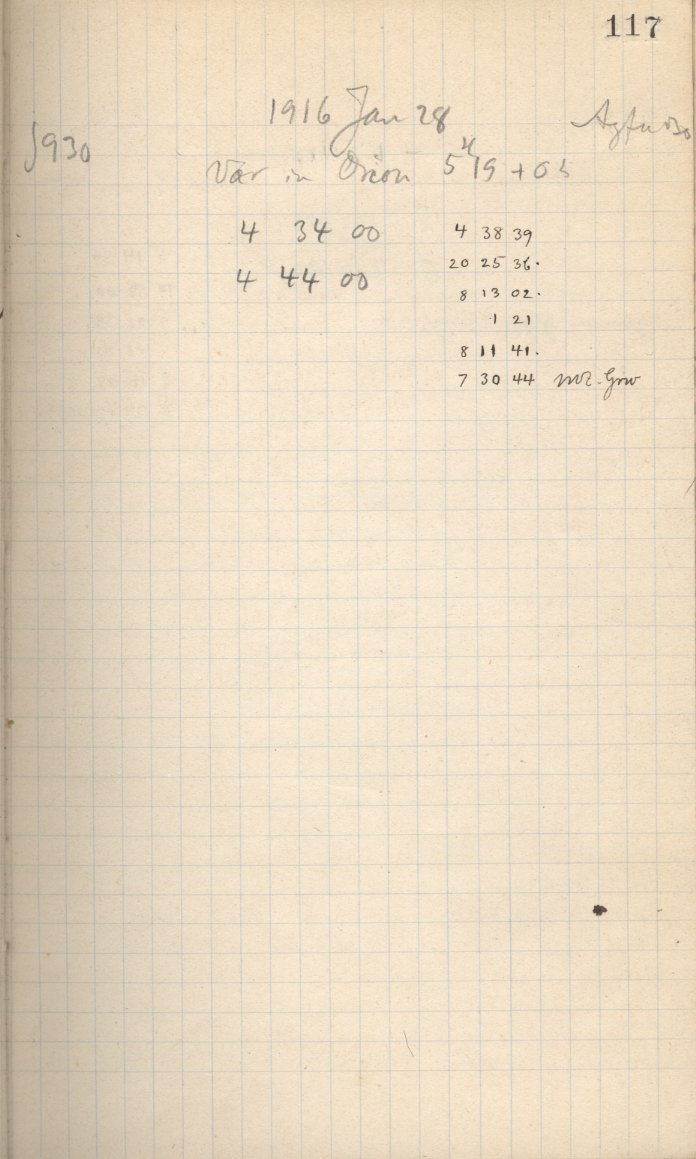 117
1916 Jan 28
J930
Var in Orion 5 19 + 05
4 34 00
4 44 00
4 38 39
20 25 36.
8 13 02.
1 21
8 11 41.
7 30 44